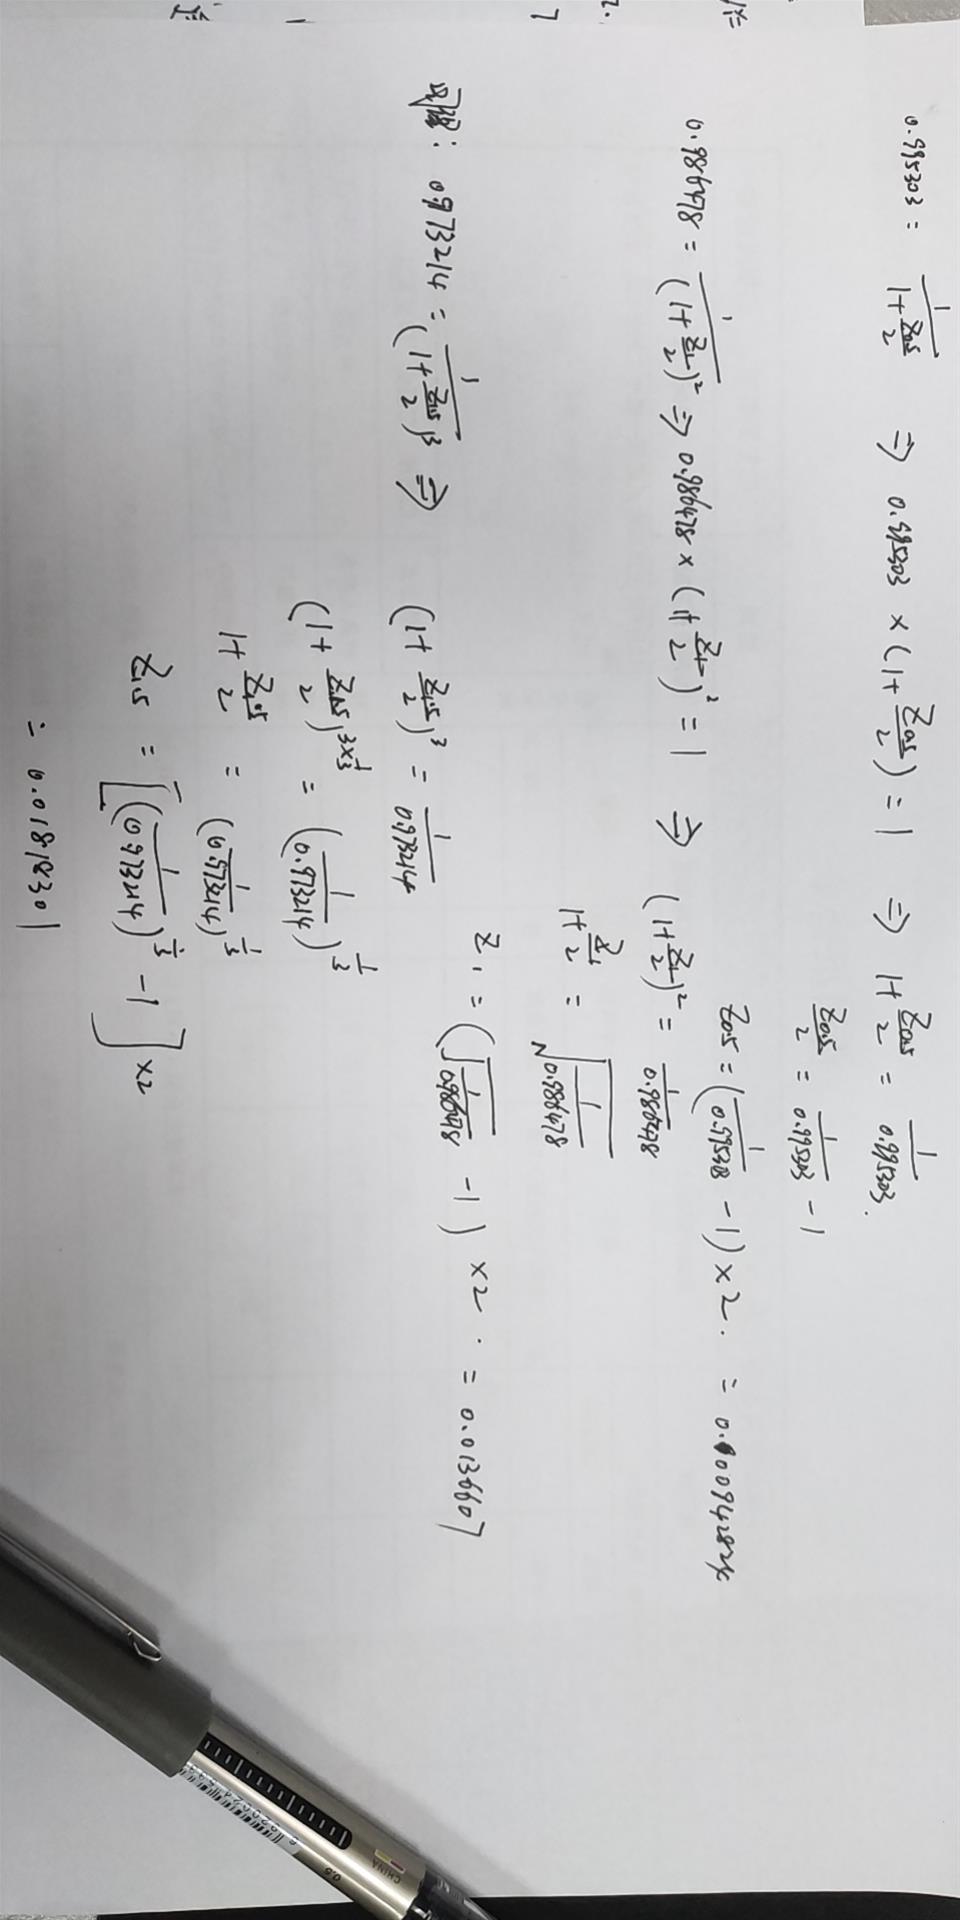 0.995303 = 1/(1+Z0.5/2) ⇒ 0.995303 × (1+Z0.5/2) = 1 ⇒ 1+Z0.5/2 = 1/0.995303.
Z0.5/2 = 1/0.995303 - 1
Z0.5 = (1/0.99538 - 1) × 2. =
0.986478 = 1/(1+Z1/2)² ⇒ 0.986478 × (1+Z1/2)² = 1 ⇒ (1+Z1/2)² = 1/0.986478
1+Z1/2 = √(1/0.986478)
Z1 = (√(1/0.986478) - 1) × 2. = 0.0136607
: 0.973214 = 1/(1+Z1.5/2)³ ⇒ (1+Z1.5/2)³ = 1/0.973214
(1+Z1.5/2)^(3×1/3) = (1/0.973214)^(1/3)
1+Z1.5/2 = (1/0.973214)^(1/3)
Z1.5 = [(1/0.973214)^(1/3) - 1] ×2
= 0.01818301
CHINA
0.5